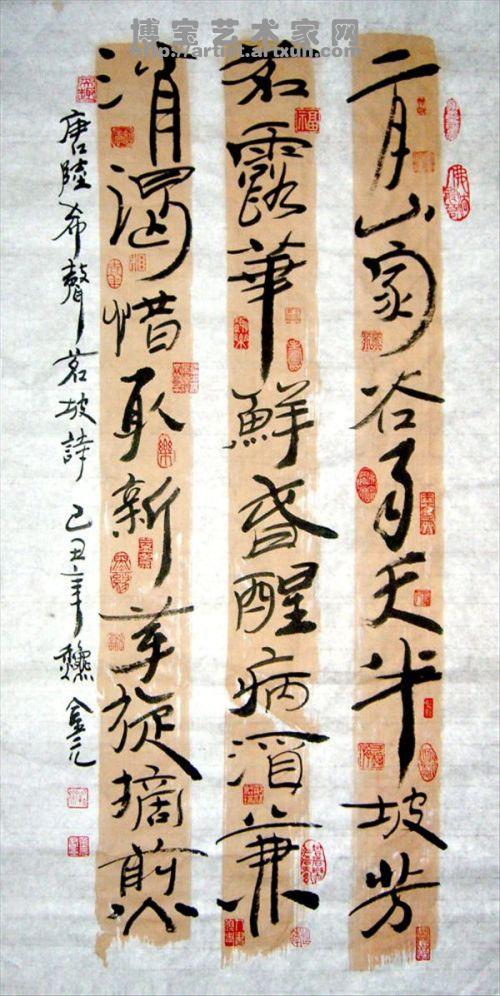 博宝艺术家网
http://artist.artxun.com
二月山家谷雨天半坡芳
茗露華鮮春醒病酒兼
消渴惜取新芽旋摘煎
唐陸希聲茗坡詩 己丑年龝 金元